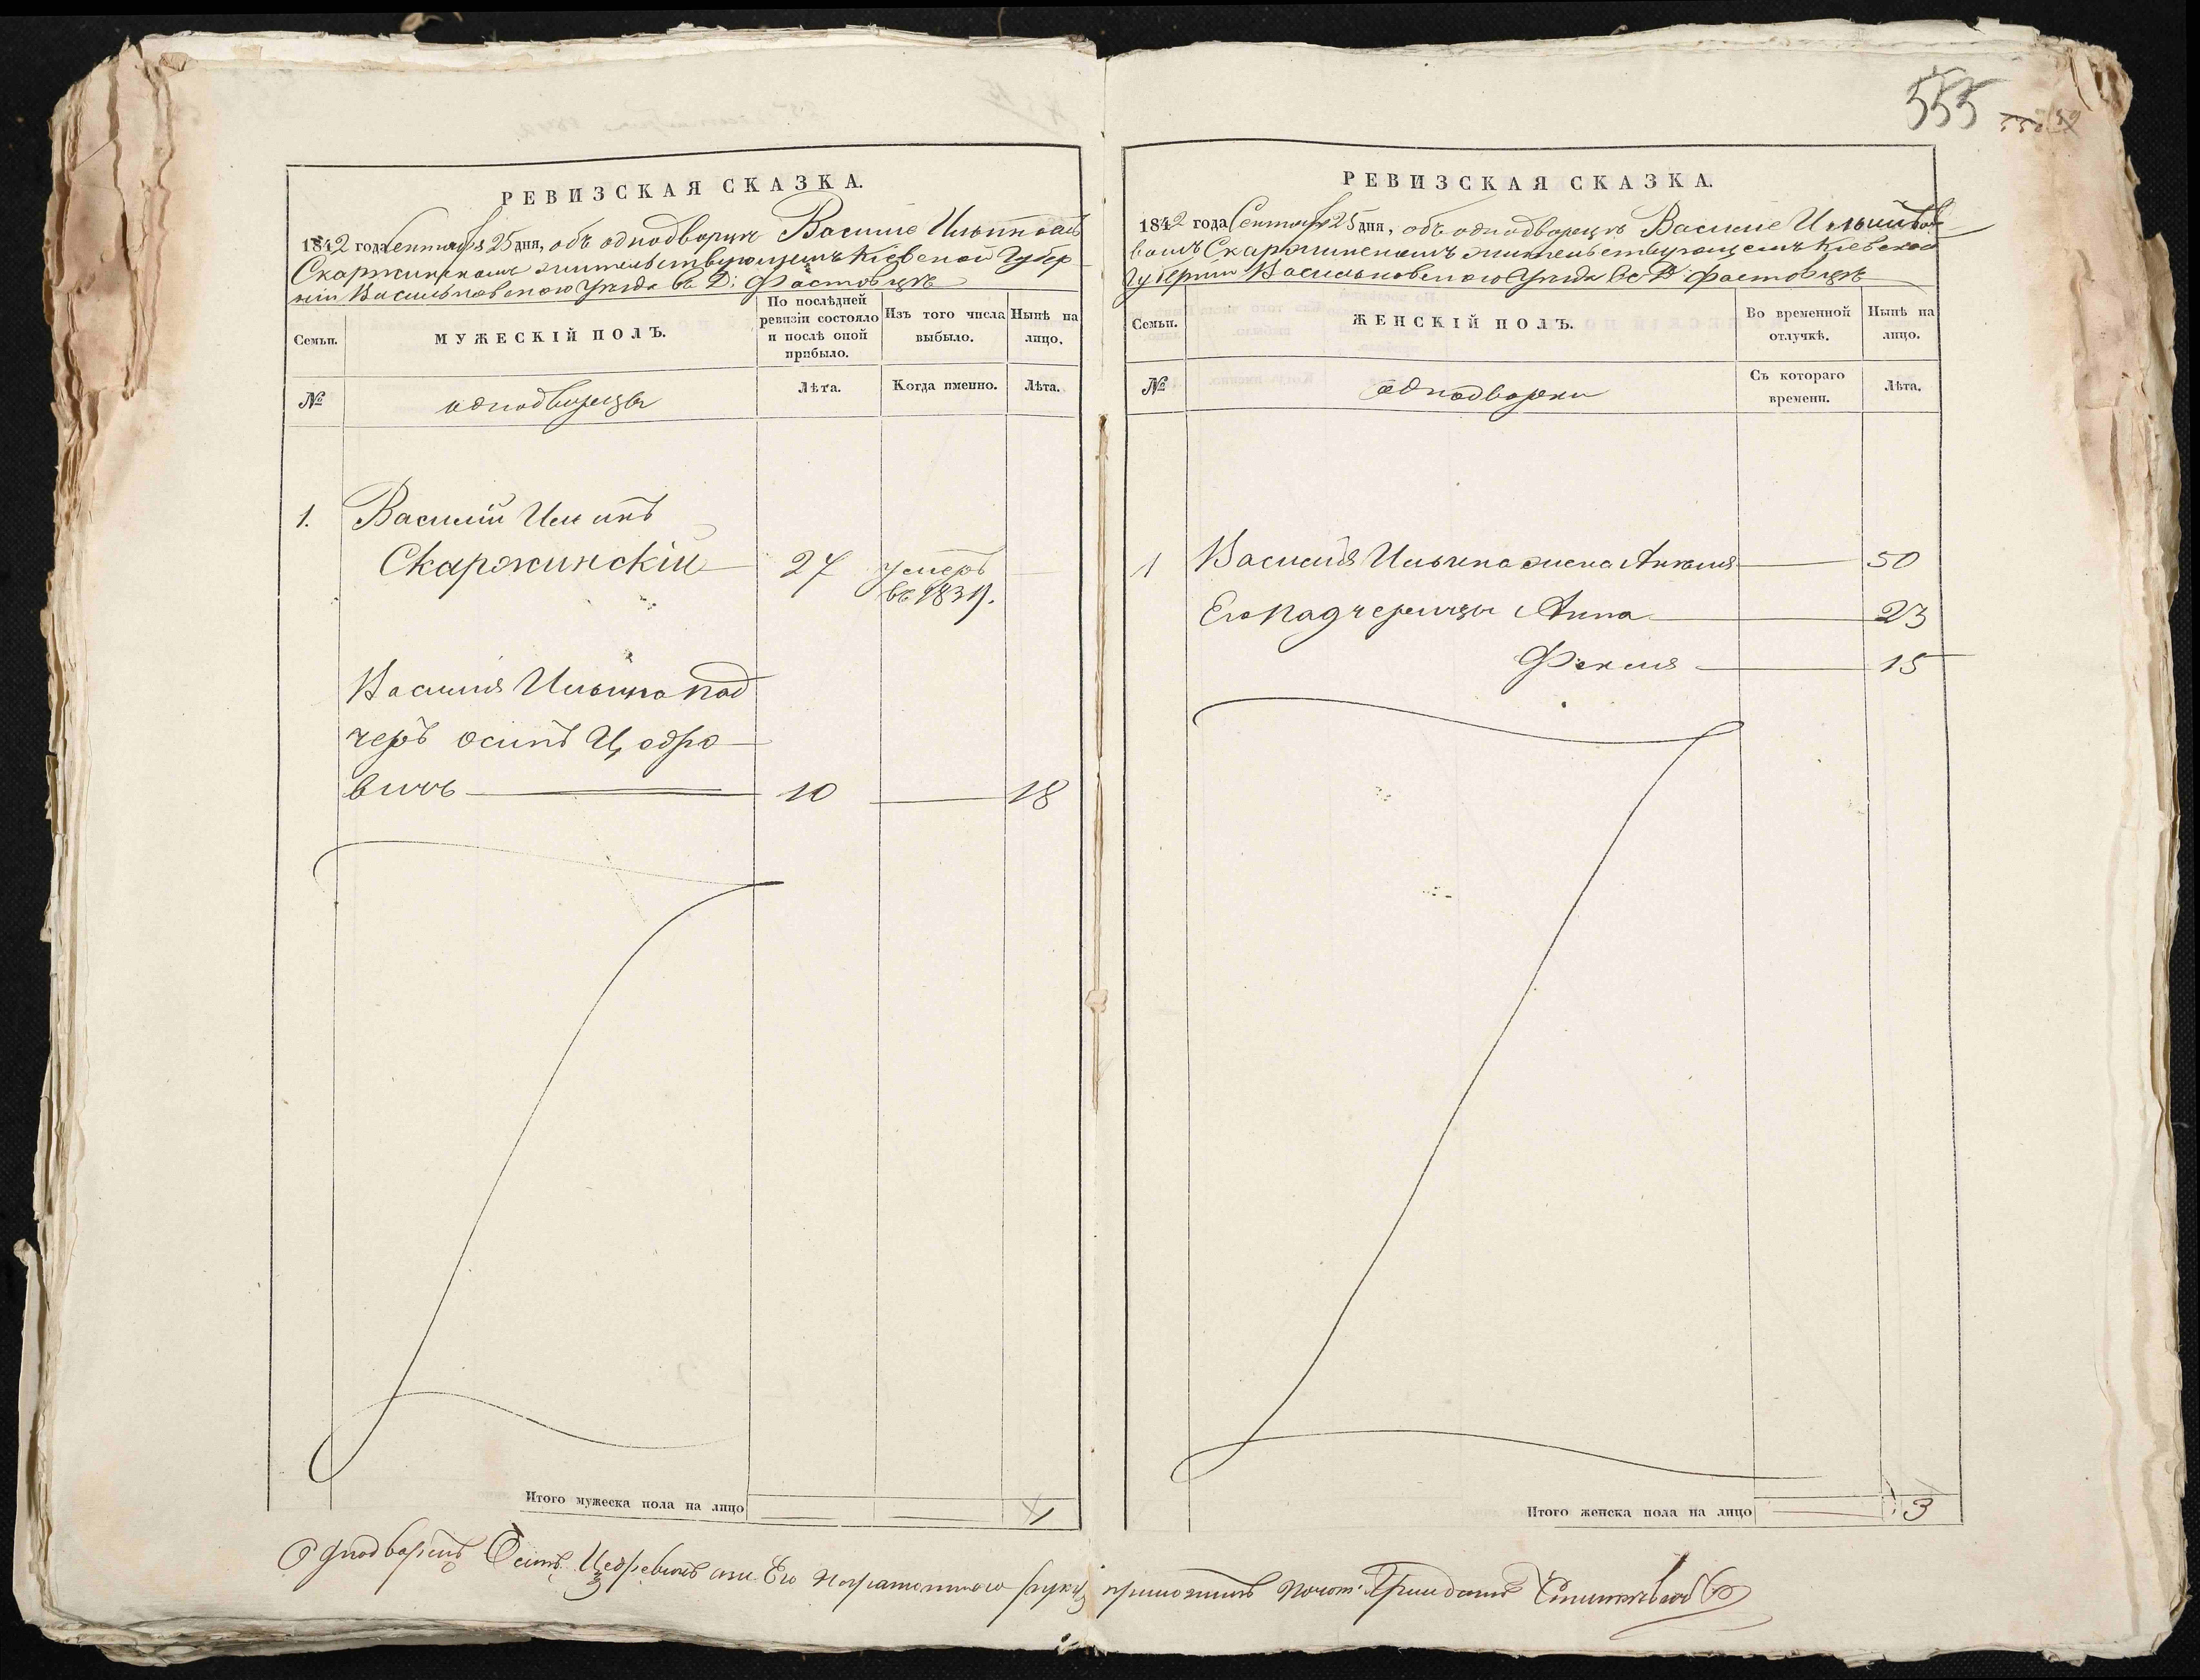 РЕВИЗСКАЯ СКАЗКА.
1842 года Сентября 25 дня, объ однодворце Василіе Ильиновѣ
Скаржинскомъ жительствующемъ Кіевской Губер
ніи Васильковского Уезда въ Д: Фастовцѣ
Семьи.
МУЖЕСКІЙ ПОЛЪ.
По послѣдней
ревизіи состояло
и послѣ оной
прибыло.
Изъ того числа
выбыло.
Нынѣ на
лицо.
№
однодворцы
Лѣта.
Когда именно.
Лѣта.
1. Василій Ильинъ
Скаржинскій 27 умеръ
въ 1839.
Василія Ильина пад
черъ Осипъ Цедро
вичъ 10 18
Итого мужеска пола на лицо 1
555
РЕВИЗСКАЯ СКАЗКА.
1842 года Сентября 25 дня, объ однодворцѣ Василіе
Скаржинскомъ жительствующемъ Кіевской
Губерніи Васильковского Уезда въ Д: Фастовцѣ
Семьи.
ЖЕНСКІЙ ПОЛЪ.
Во временной
отлучкѣ.
Нынѣ на
лицо.
№
однодворки
Съ котораго
времени.
Лѣта.
1 Василія Ильина жена 50
Его падчерицы Анна 23
Фекля 15
Итого женска пола на лицо 3
Однодворецъ Осипъ Цедровичъ а за Его неграмотного руку приложилъ почот: Гражданинъ